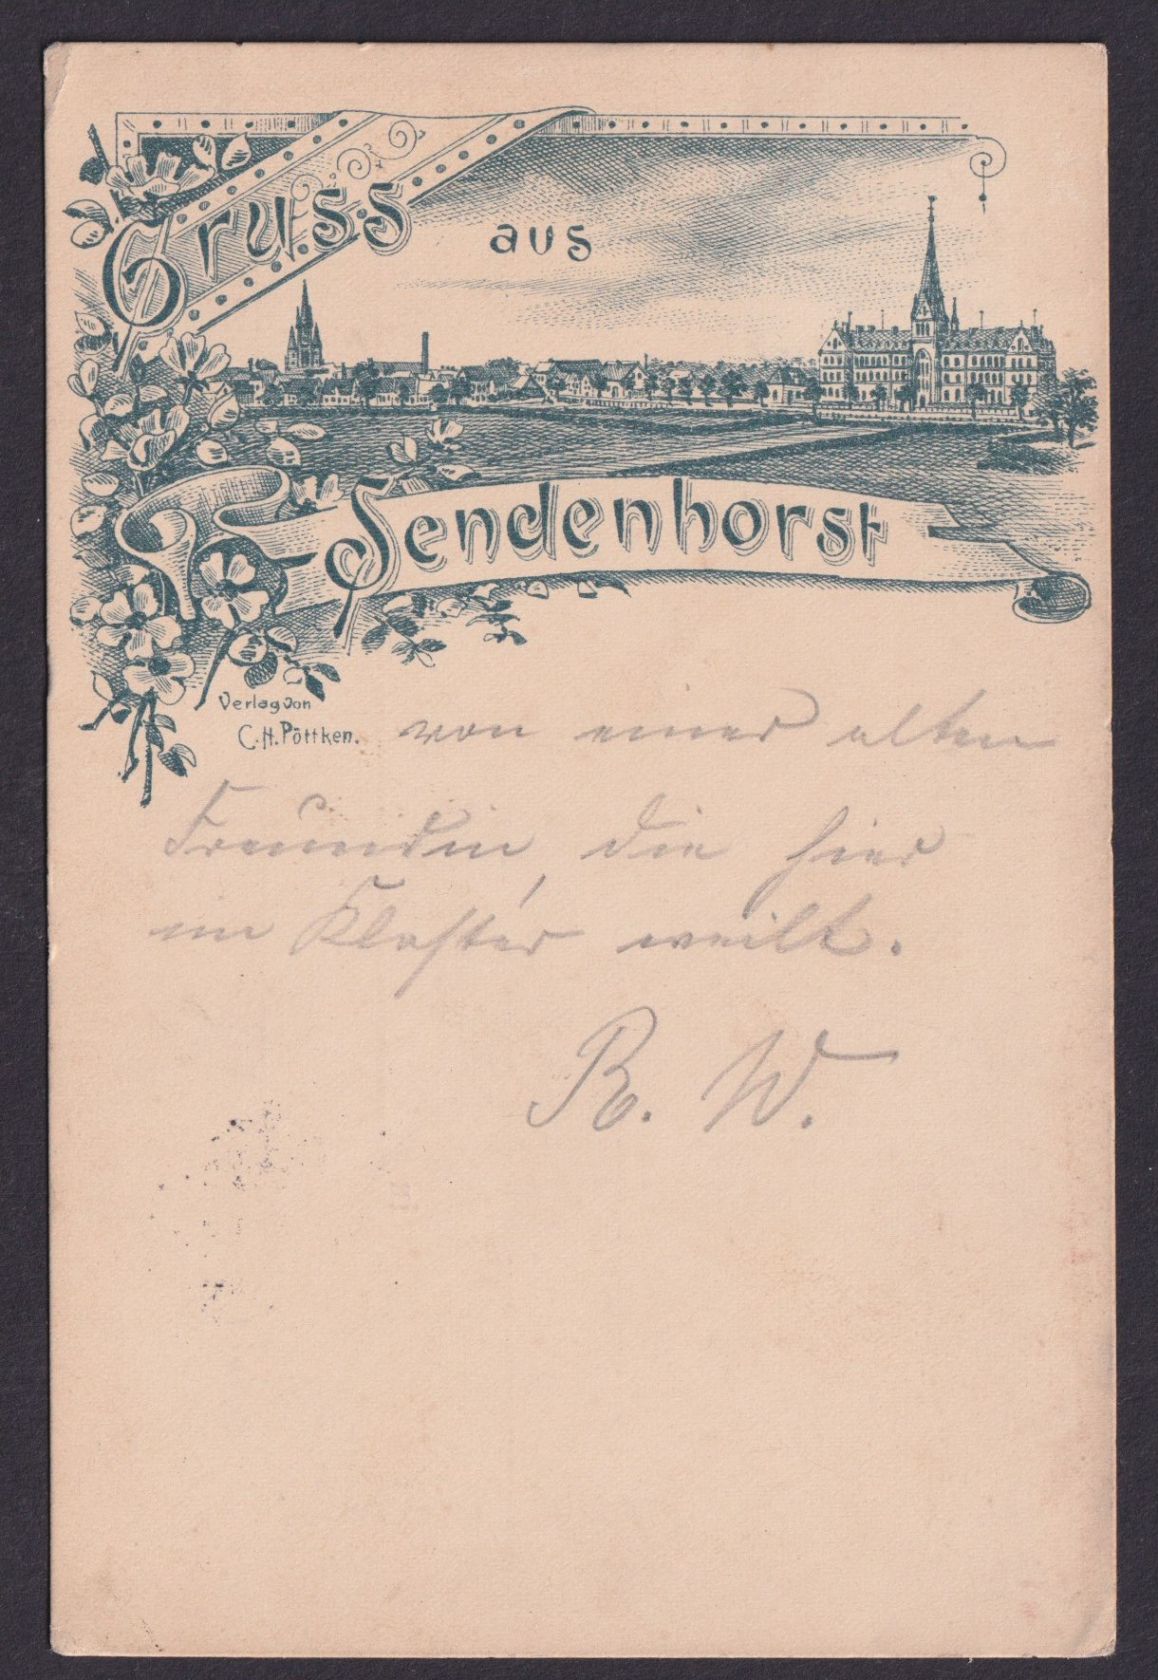 Gruss
aus
Sendenhorst
Verlag von
C.H. Pöttken.
von einer alten
Freundin die hier
im Kloster weilt.
R. W.